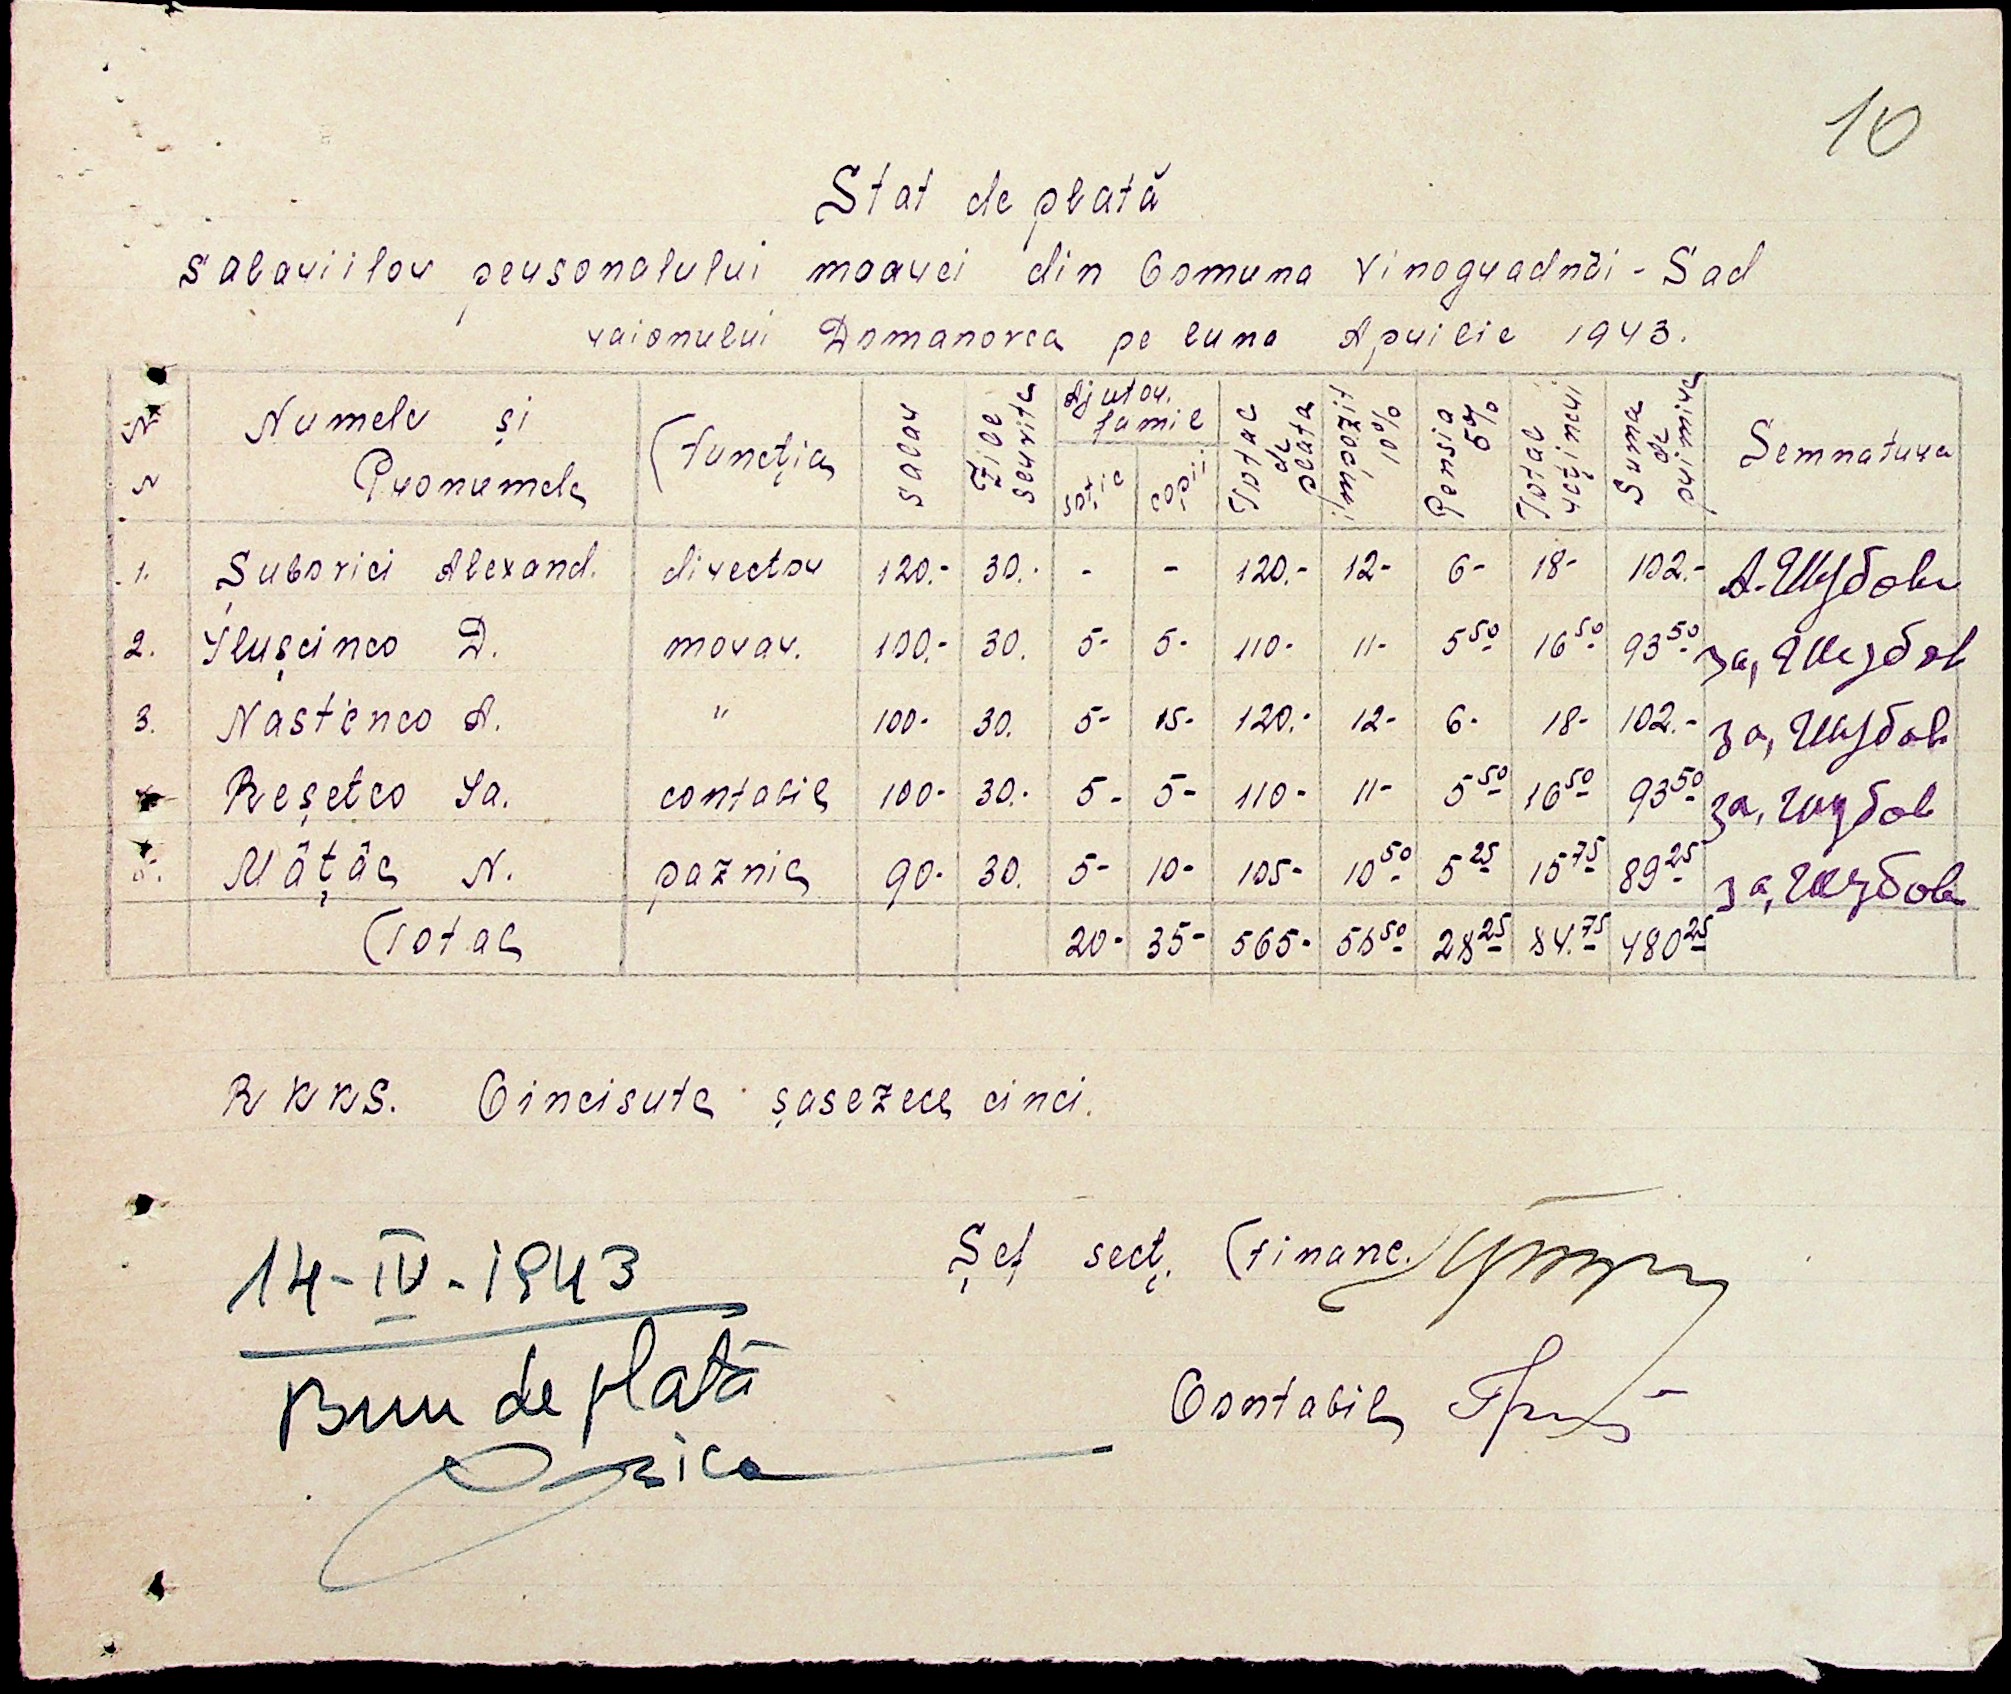 10
Stat de plată
Salariilor personalului moarei din Comuna Vinogradnâi - Sad
raionului Domanovca pe luna Aprilie 1943.
N N | Numele și Pronumele | Funcția | Salar | Zile servite | Ajutor. famil | Total de plata | impozit 10% | Pensia 5% | Total rețineri | Suma de primire | Semnatura
soție | copii
1. Șubovici Alexand. director 120.- 30.- - - 120.- 12- 6- 18- 102.- А. Шубови
2. Ilușcinco D. morar. 100.- 30. 5- 5- 110- 11- 5 50 16 50 93 50 за, Шубов
3. Nastenco A. " 100- 30. 5- 15- 120.- 12- 6- 18- 102.- за, Шубов
Reșetco Ia. contabil 100- 30.- 5- 5- 110- 11- 5 50 16 50 93 50 за, Шубов
5. Mâțâc N. paznic 90- 30. 5- 10- 105- 10 50 5 25 15 75 89 25 за, Шубов
Total 20- 35- 565- 56 50 28 25 84. 75 480 25
RKKS. Cincisute șasezece cinci.
14-IV-1943
Șef secț. financ.
Bun de plată
Contabil